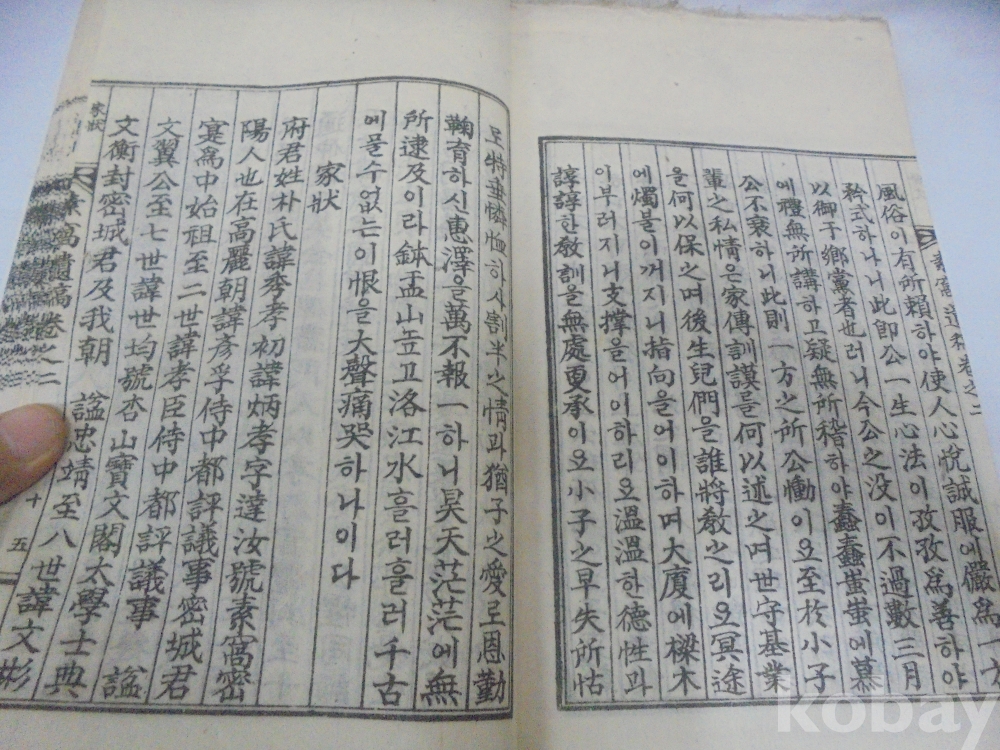 風俗이有所賴하야使人心悅誠服에儼爲一方
矜式하나니此即公一生心法이孜孜爲善하야
以御于鄉黨者也러니今公之没이不過數三月
에禮無所講하고疑無所稽하야蠢蠢蚩蚩에慕
公不衰하니此則一方之所公慟이요至於小子
輩之私情은家傳訓謨를何以述之며世守基業
을何以保之며後生兒們을誰將敎之리오冥途
에燭불이꺼지니指向을어이하며大廈에樑木
이부러지니支撑을어이하리오溫溫한德性과
諄諄한敎訓을無處更承이요小子之早失所怙
로特垂憐恤하사割半之情과猶子之愛로恩勤
鞠育하신惠澤을萬不報一하니昊天茫茫에無
所逮及이라鉢盂山높고洛江水흘러흘러千古
에믈수없는이恨을大聲痛哭하나이다
家狀
府君姓朴氏諱秀孝初諱炳孝字達汝號素窩密
陽人也在高麗朝諱彦孚侍中都評議事密城君
寔爲中始祖至二世諱孝臣侍中都評議事 諡
文翼公至七世諱世均號杏山寶文閣太學士典
文衡封密城君及我朝 諡忠靖至八世諱文彬
素窩遺稿卷之二
家狀
十五
kobay